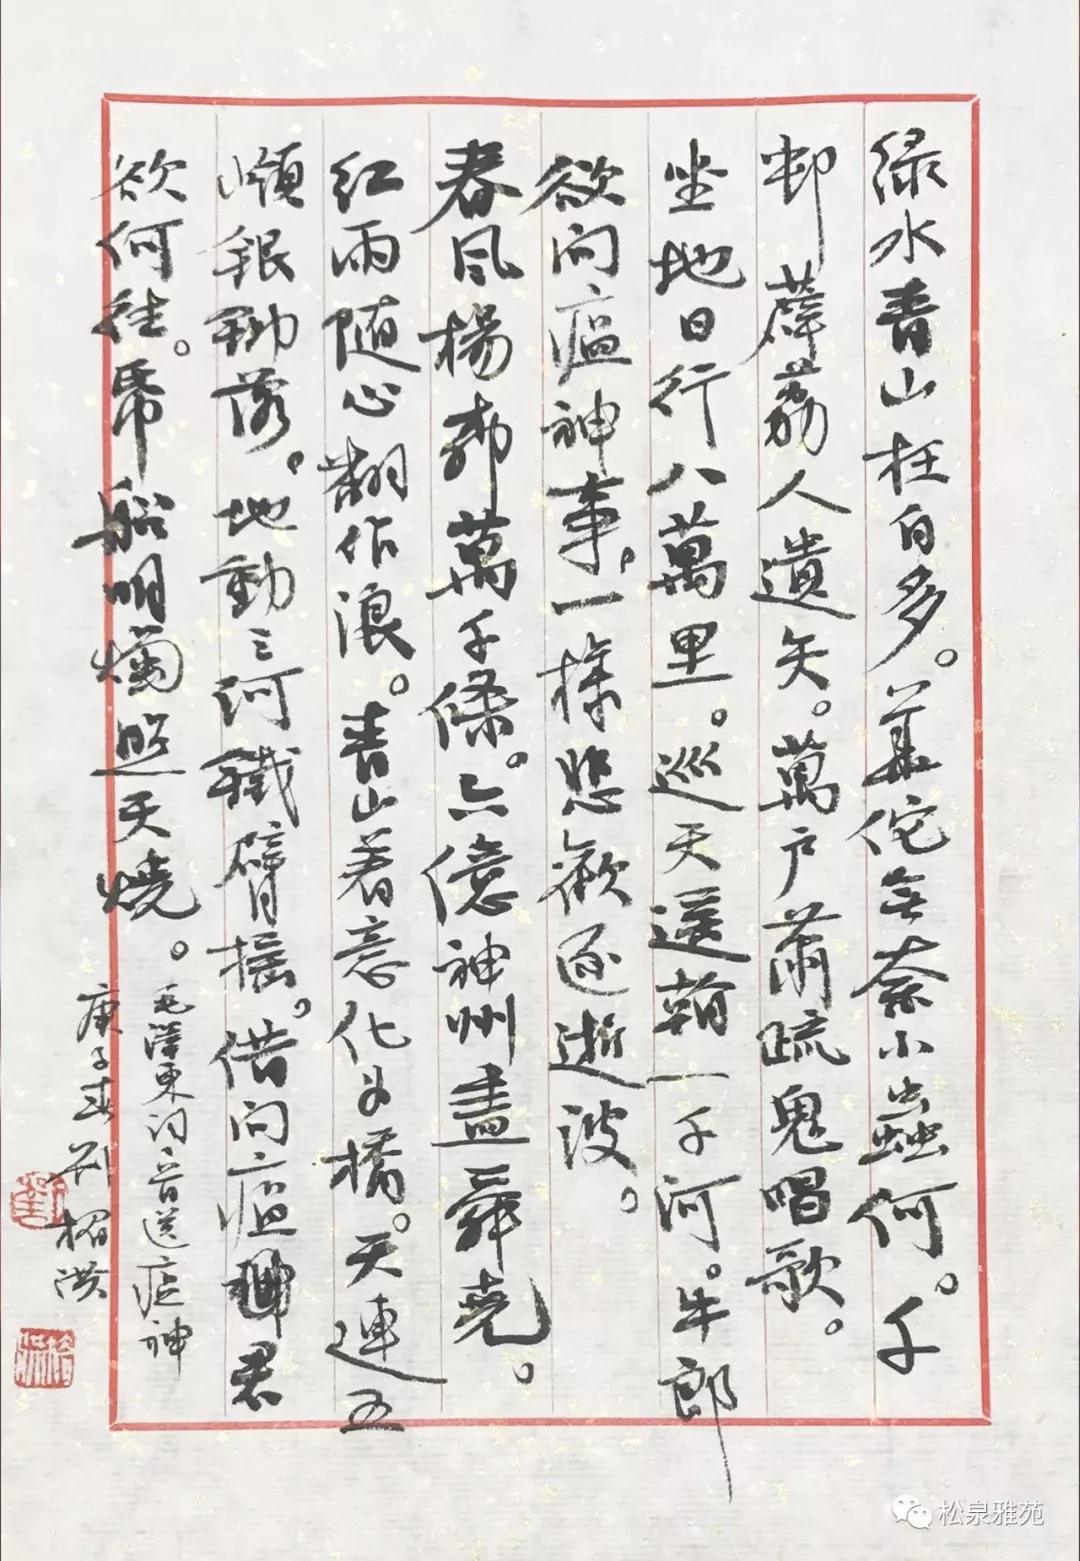 绿水青山枉自多。華佗无奈小蟲何。千
邨薜荔人遺矢。萬户蕭疏鬼唱歌。
坐地日行八萬里。巡天遥看一千河。牛郎
欲问瘟神事。一樣悲歡逐逝波。
春風楊柳萬千條。六億神州盡舜堯。
红雨随心翻作浪。青山着意化为橋。天連五
嶺銀鋤落。地動三河鐵臂摇。借问瘟神君
欲何往。帋船明燭照天燒。
毛澤東词二首送瘟神
庚子春
松泉雅苑